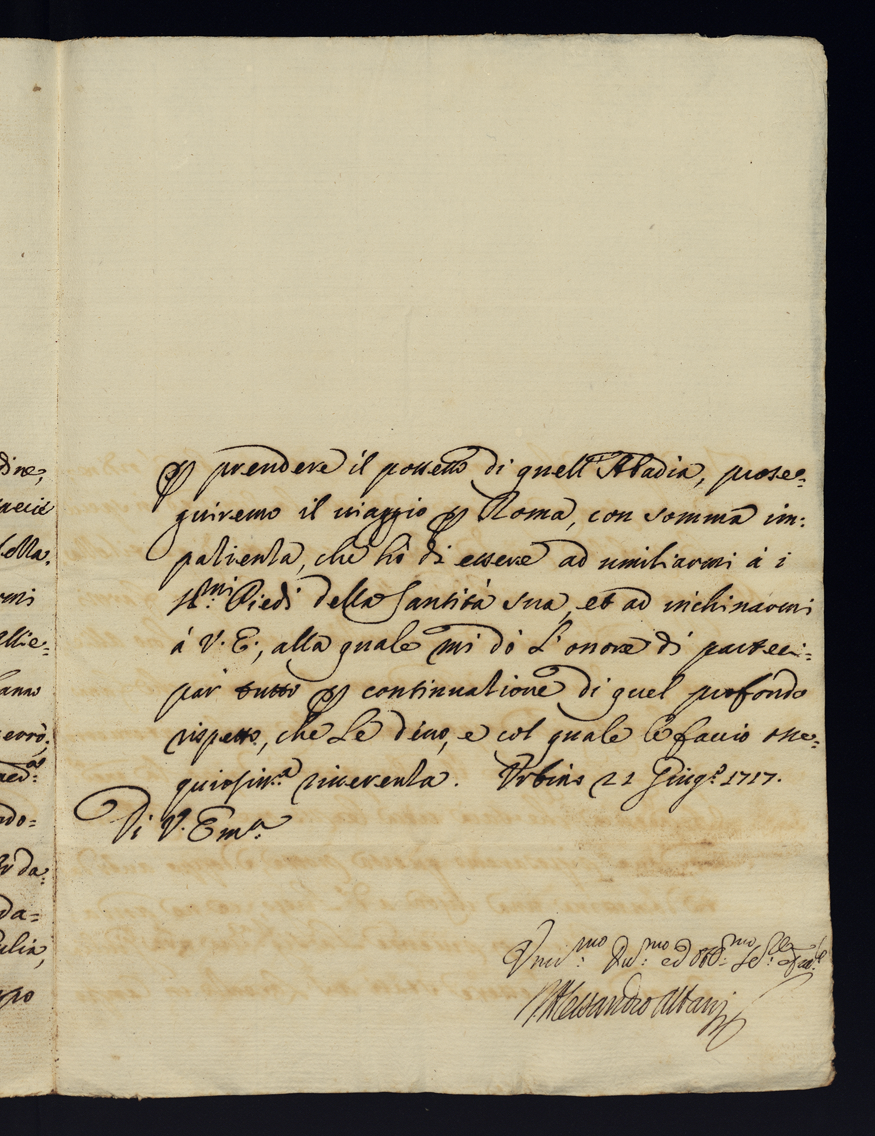 dine,
ꝑ prendere il possesso di quell'Abadia, prose=
guiremo il viaggio ꝑ Roma, con somma im:
patienza, che hò di essere ad umiliarmi à i
SS.mi Piedi della Santità sua, et ad inchinarmi
à V. E., alla quale mi dò l'onore di parteci:
par tutto ꝑ continuatione di quel profondo
rispetto, che Le devo, e col quale le faccio osse=
quiosiss.ma riverenza. Urbino 22 Giug.o 1717.
Di V. Em.a
Umi.mo Du.mo ed Obb.mo
Alessandro Albani
rmi
anno
da=